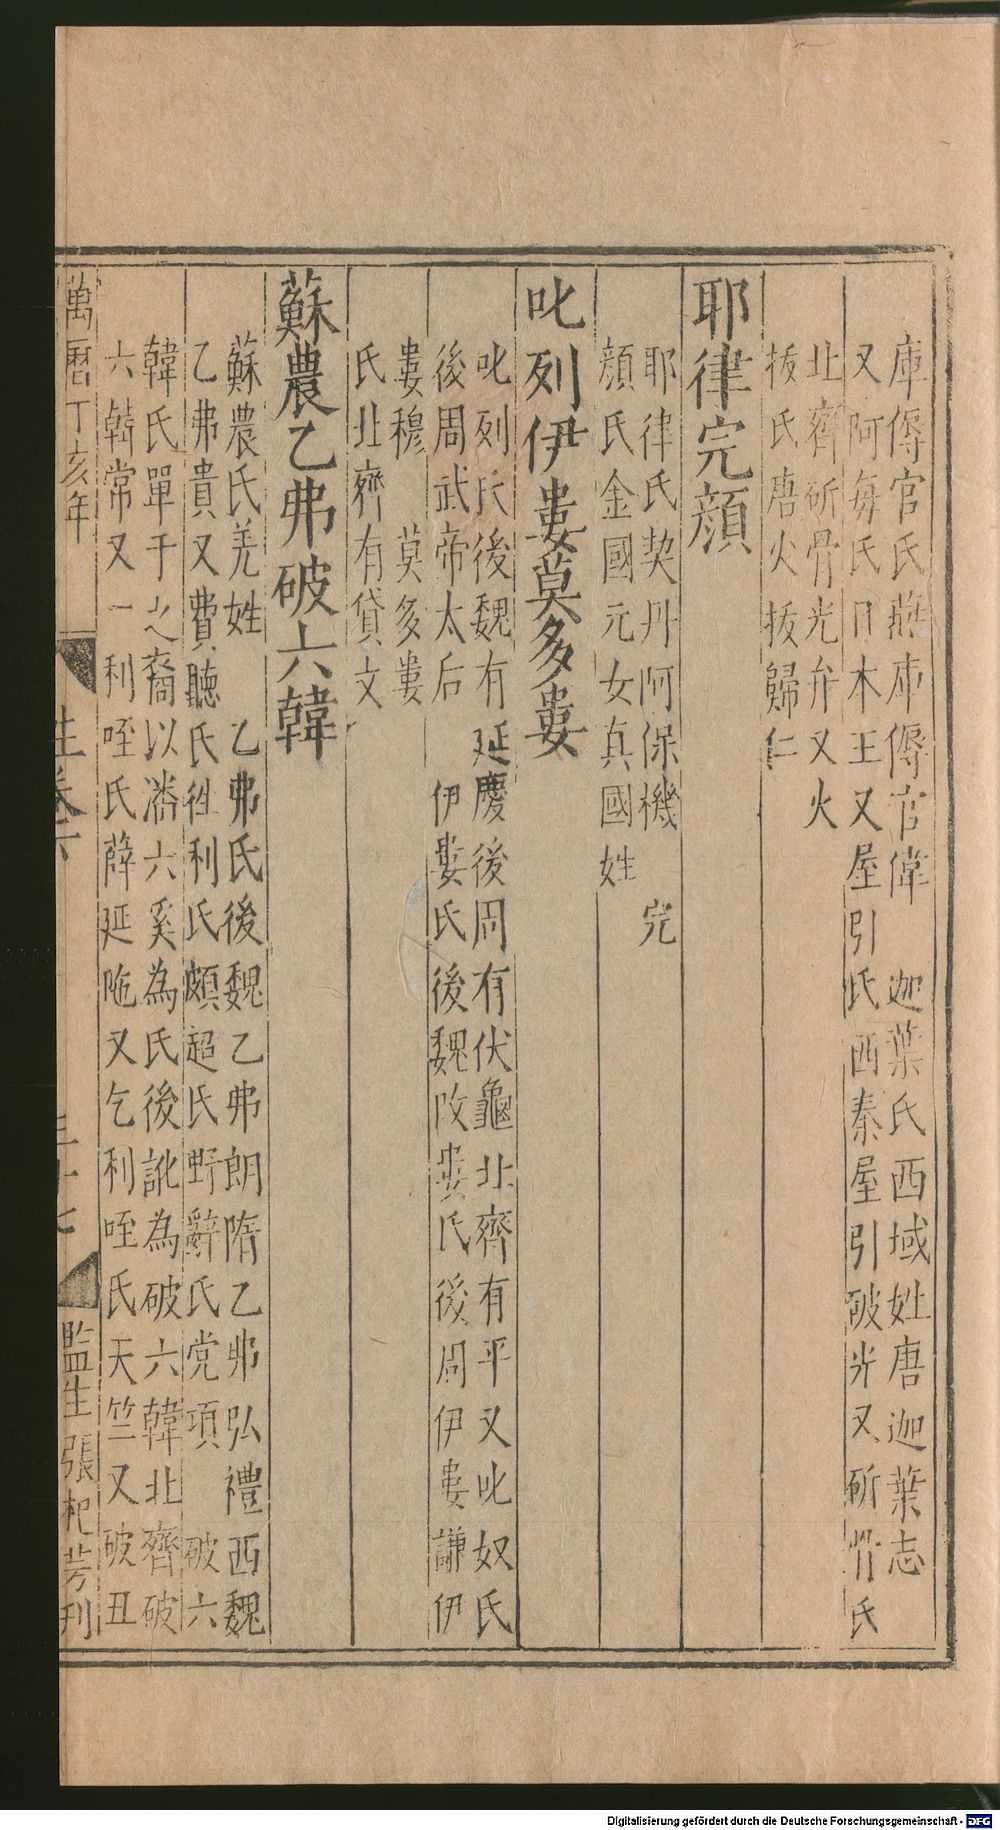 庫傉官氏燕庫傉官偉 迦葉氏西域姓唐迦葉志
又阿每氏日木王又屋引氏西秦屋引破光又斫骨氏
北齊斫骨光弁又火
拔氏唐火拔歸仁
耶律完顔
耶律氏契丹阿保機 完
顔氏金國元女真國姓
叱列伊婁莫多婁
叱列氏後魏有延慶後周有伏龜北齊有平又叱奴氏
後周武帝太后 伊婁氏後魏改婁氏後周伊婁謙伊
婁穆 莫多婁
氏北齊有貸文
蘇農乙弗破六韓
蘇農氏羌姓 乙弗氏後魏乙弗朗隋乙弗弘禮西魏
乙弗貴又費聽氏徃利氏頗超氏野辭氏党項 破六
韓氏單于之裔以潘六奚為氏後訛為破六韓北齊破
六韓常又一利咥氏薛延陁又乞利咥氏天竺又破丑
萬曆丁亥年 姓卷六 三十七 監生張杞芳刊
Digitalisierung gefördert durch die Deutsche Forschungsgemeinschaft - DFG